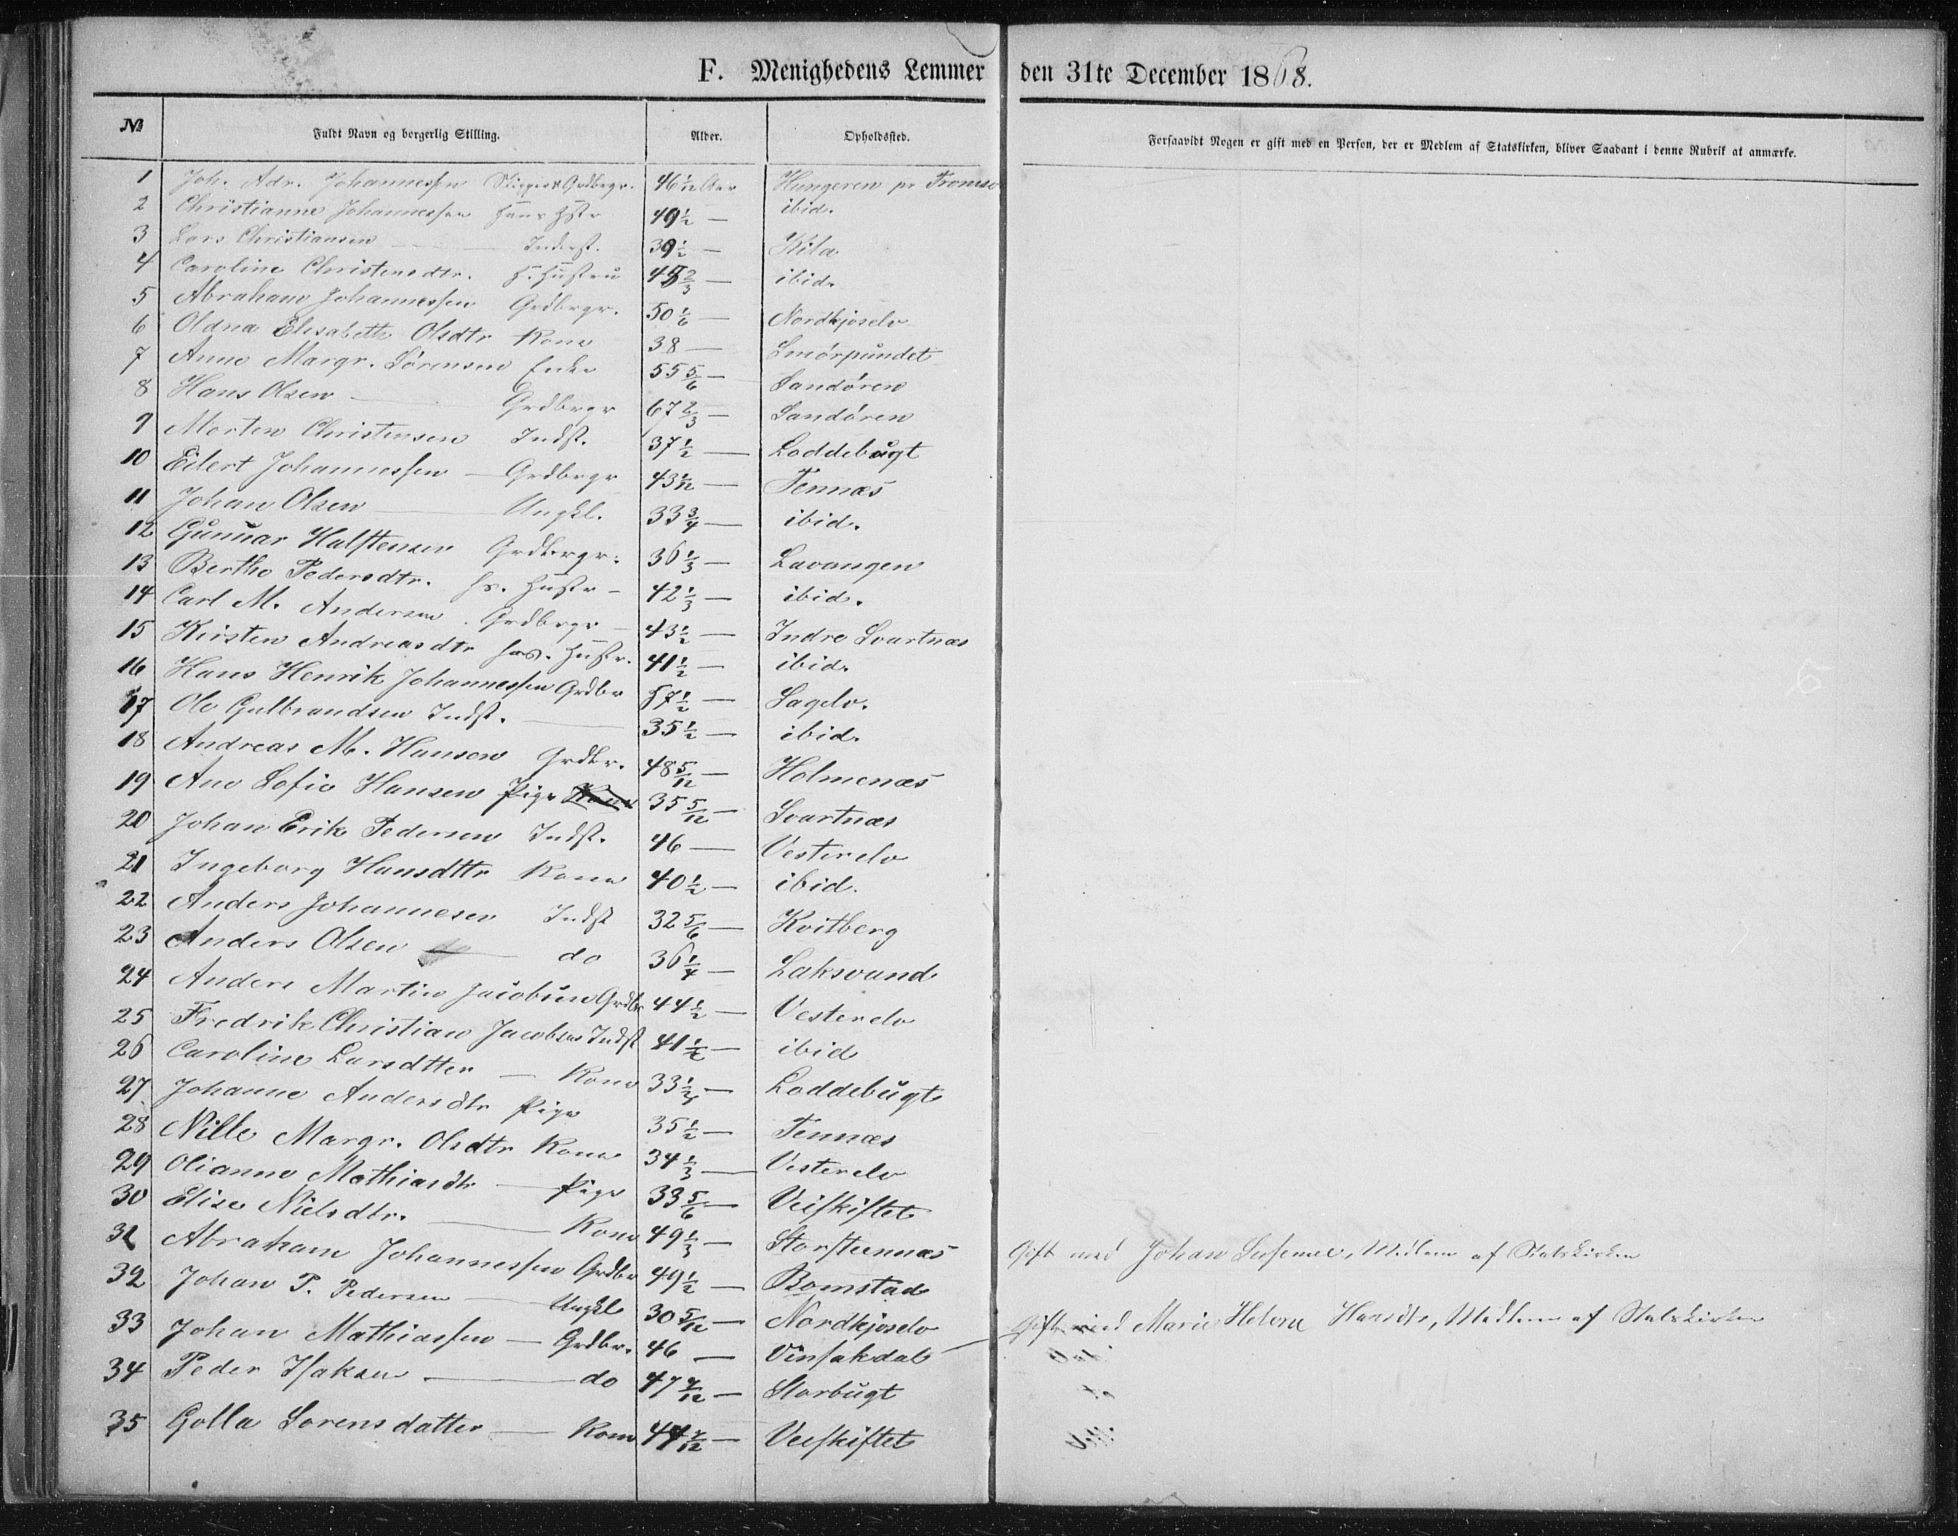 F. Menighedens Lemmer den 31te December 1868.
№ Fuldt Navn og borgerlig Stilling. Alder. Opholdssted. Forsaavidt Nogen er gift med en Person, der er Medlem af Statskirken, bliver Saadant i denne Rubrik at anmærke.
1 Joh. Adr. Johannessen Skipper & Grdbrgr. 46 1/12 Aar Hungeren pr Tromsø
2 Christianne Johannessen Hans Hstr 49 1/2 — ibid.
3 Lars Christiansen — Inderst. 39 1/2 — Kila
4 Caroline Christensdtr. H. Hustru 45 2/3 — ibid.
5 Abraham Johannessen Grdbrgr. 50 1/6 — Nordkjoselv
6 Oldna Elisabeth Olsdtr Kone 38 — Smörpundet
7 Anne Margr. Sørensen Enke 55 5/6 — Sandören
8 Hans Olsen — Grdbrgr 67 2/3 — Sandören
9 Morten Christensen Indst. 37 1/2 — Loddebugt
10 Eilert Johannessen — Grdbrgr 43 1/12 — Tennæs
11 Johan Olsen — Ungkl. 33 3/4 — ibid.
12 Gunnar Halstensen Grdbrgr. 36 1/3 — Lavangen
13 Berthe Pedersdtr. hs. Hustr — 42 1/3 — ibid.
14 Carl M. Andersen. Grdbrgr — 43 1/2 — Indre Svartnæs
15 Kirsten Andreasdtr hs. Hustr. 41 1/2 — ibid.
16 Hans Henrik Johannessen Grdbr 57 1/2 — Sagelv.
17 Ole Gulbrandsen Indst. — 35 1/2 — ibid.
18 Andreas M. Hansen Grdbr. 48 5/12 — Holmenæs
19 Ane Sofie Hansen Pige 35 5/12 — Svartnæs
20 Johan Erik Pedersen Indst. 46 — Vesterelv
21 Ingeborg Hansdttr Kone 40 1/2 — ibid.
22 Anders Johannesen Indst 32 5/6 — Kvitberg
23 Anders Olsen — do 36 1/4 — Laksvand
24 Anders Martin Jacobsen Grdbr 44 1/2 — Vesterelv
25 Fredrik Christian Jacobsen Indst 41 1/2 — ibid
26 Caroline Larsdtter — Kone 33 1/2 — Loddebugt
27 Johanne Andersdtr Pige 35 1/2 — Tennæs
28 Nille Margr. Olsdtr Kone 34 1/3 — Vesterelv
29 Olianne Mathiasdtr — Pige 33 5/6 — Veiskiftet
30 Elise Nielsdtr. — Kone 49 1/3 — Storsteennæs Gift med Johan, Medlem af Statskirken
31 Abraham Johannessen Grdbr 49 1/2 — Bomstad
32 Johan P. Pedersen — Ungkl 30 5/12 — Nordkjoselv Gift med Marie Helene Hansdtr, Medlem af Statskirken
33 Johan Mathiassen — Grdbr. 46 — Vinsakdal
34 Peder Isaksen — do 47 7/12 — Storbugt
35 Golla Sorensdatter — Kone 44 7/12 — Veiskiftet